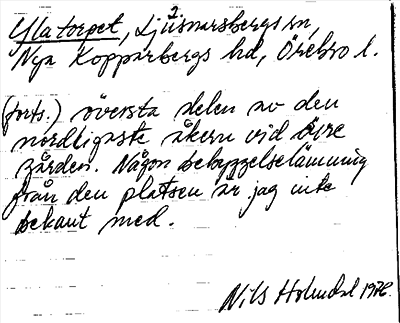 Ylatorpet, Ljusnarsbergs sn,
2
Nya Kopparbergs hd, Örebro l.
(forts.) översta delen av den
nordligaste åkern vid övre
gården. Någon bebyggelselämning
från den platsen är jag inte
bekant med.
Nils Holmdal 1978.